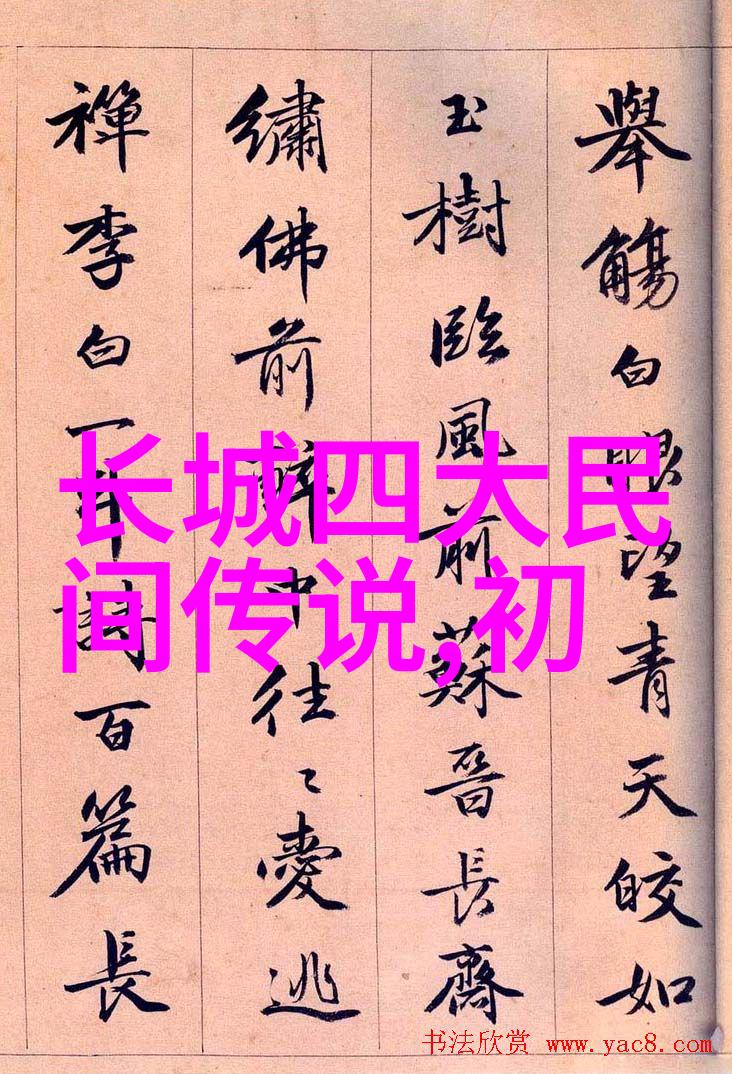 舉觴白眼望青天皎如
玉樹臨風前蘇晉長齋
繡佛前醉中往〻愛逃
禪李白一斗詩百篇長
长城四大民
间传说,初
书法欣赏 www.yac8.com